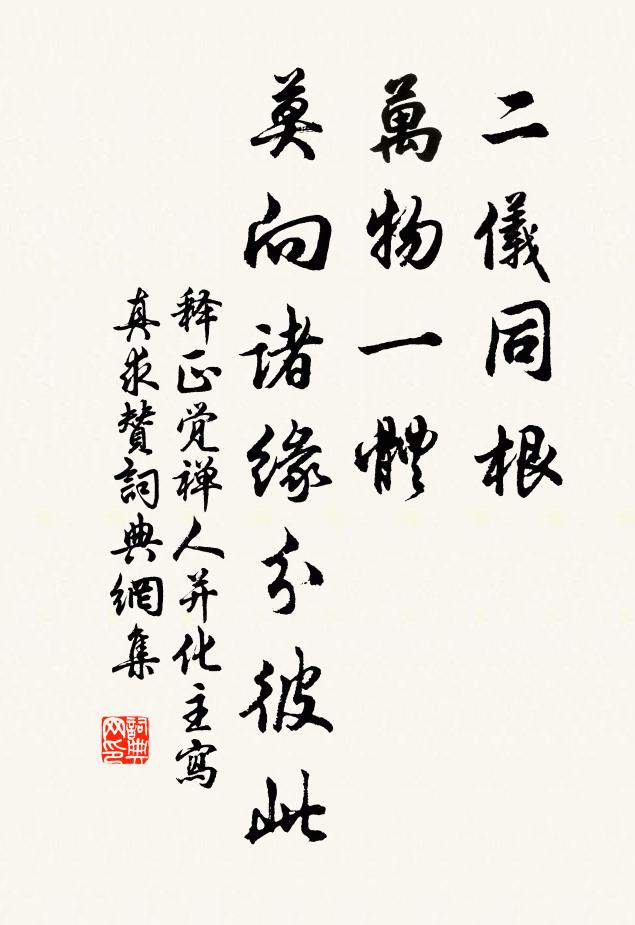 二儀同根
萬物一體
莫向諸緣分彼此
释正觉禅人并化主寫
真求贊詞典網集
詞典网印